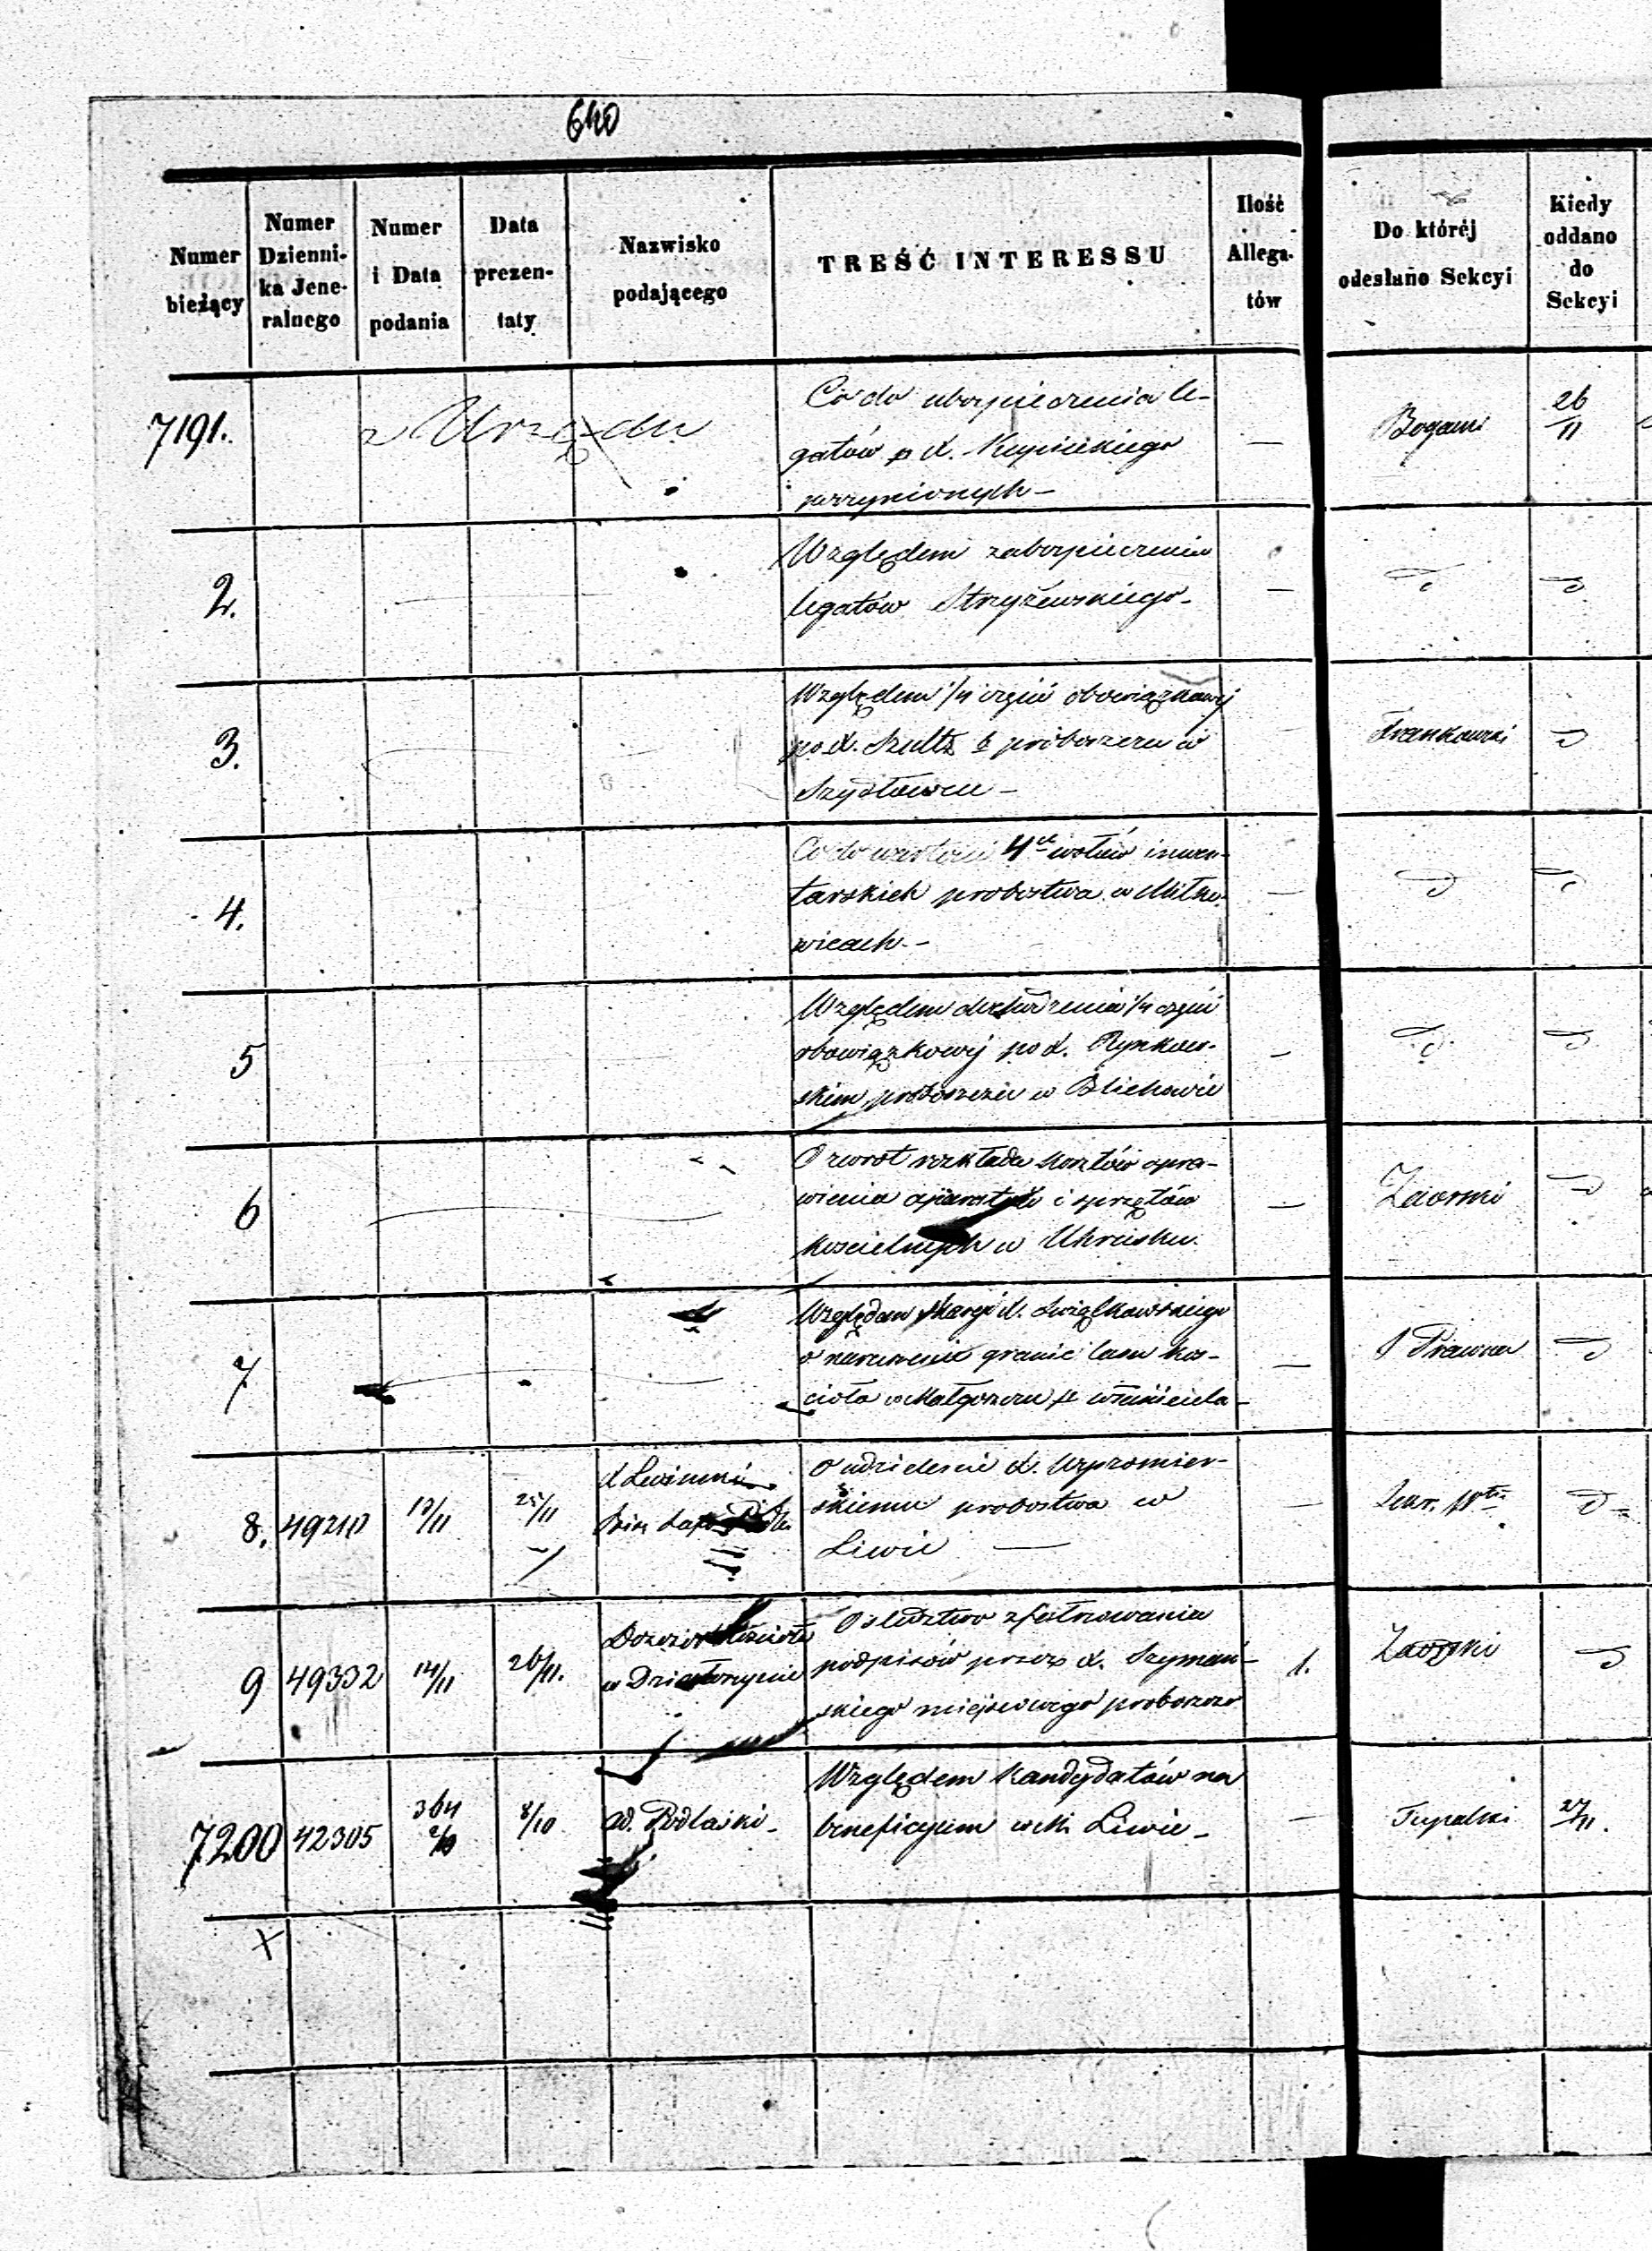 640
Numer bieżący
Numer Dzienni-
ka Jene-
ralnego
Numer i Data podania
Data prezen-
taty
Nazwisko podającego
TREŚĆ INTERESSU
Ilość Allega-
tów
Do któréj odesłano Sekcyi
Kiedy oddano do Sekcyi
7191.
z Urzędu
Co do ubezpieczenia le-
gatów p X.
—
26/11
2.
Względem zabezpieczenia
legatów Stryżewskiego-
—
3.
Względem 1/4 części obowiązkowej
po X. Szultz proboszczu w
Szydłowcu —
Frankowski
4.
Co do wartości 4ch wołów inwen-
tarskich probostwa w Miłko-
wicach.-
—
5
Względem 1/4 części
obowiązkowej po X. Rynkow-
skim proboszczu w Blichowie
—
6
O zwrot rozkładu kosztów spra-
wienia aparatów i sprzętów
kościelnych w Uhrusku.
—
Zaorski
7
Względem skargi X. Świątkowskiego
o naruszenie granic łanu koś-
cioła w Małgoszczu
—
S Prawna
8.
49210
25/11
O udzielenie X.
skiemu probostwa w
Liwie —
—
9
49332
14/11
26/11.
Dozór Kościoła
w Działoszynie
O śledztwo sfałszowania
podpisów przez X. Szymań-
skiego miejscowego proboszcza
1.
Zaorski
7200
42305
364
2/10
8/10
Ad. Podlaski -
Względem kandydatów na
beneficyum w M. Liwie -
—
Tupalski
27/11.
X